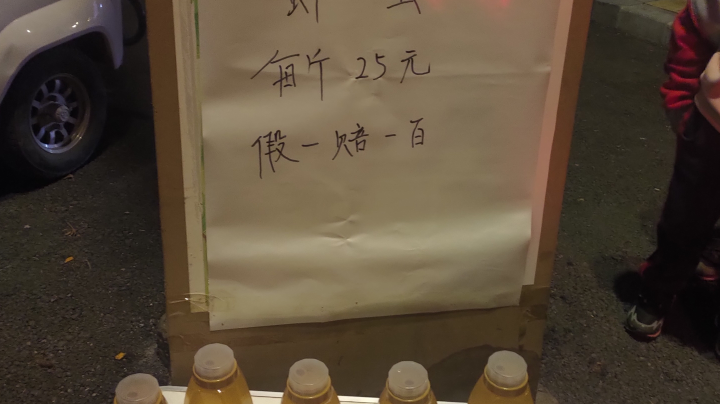 每斤 25元
假一赔一百